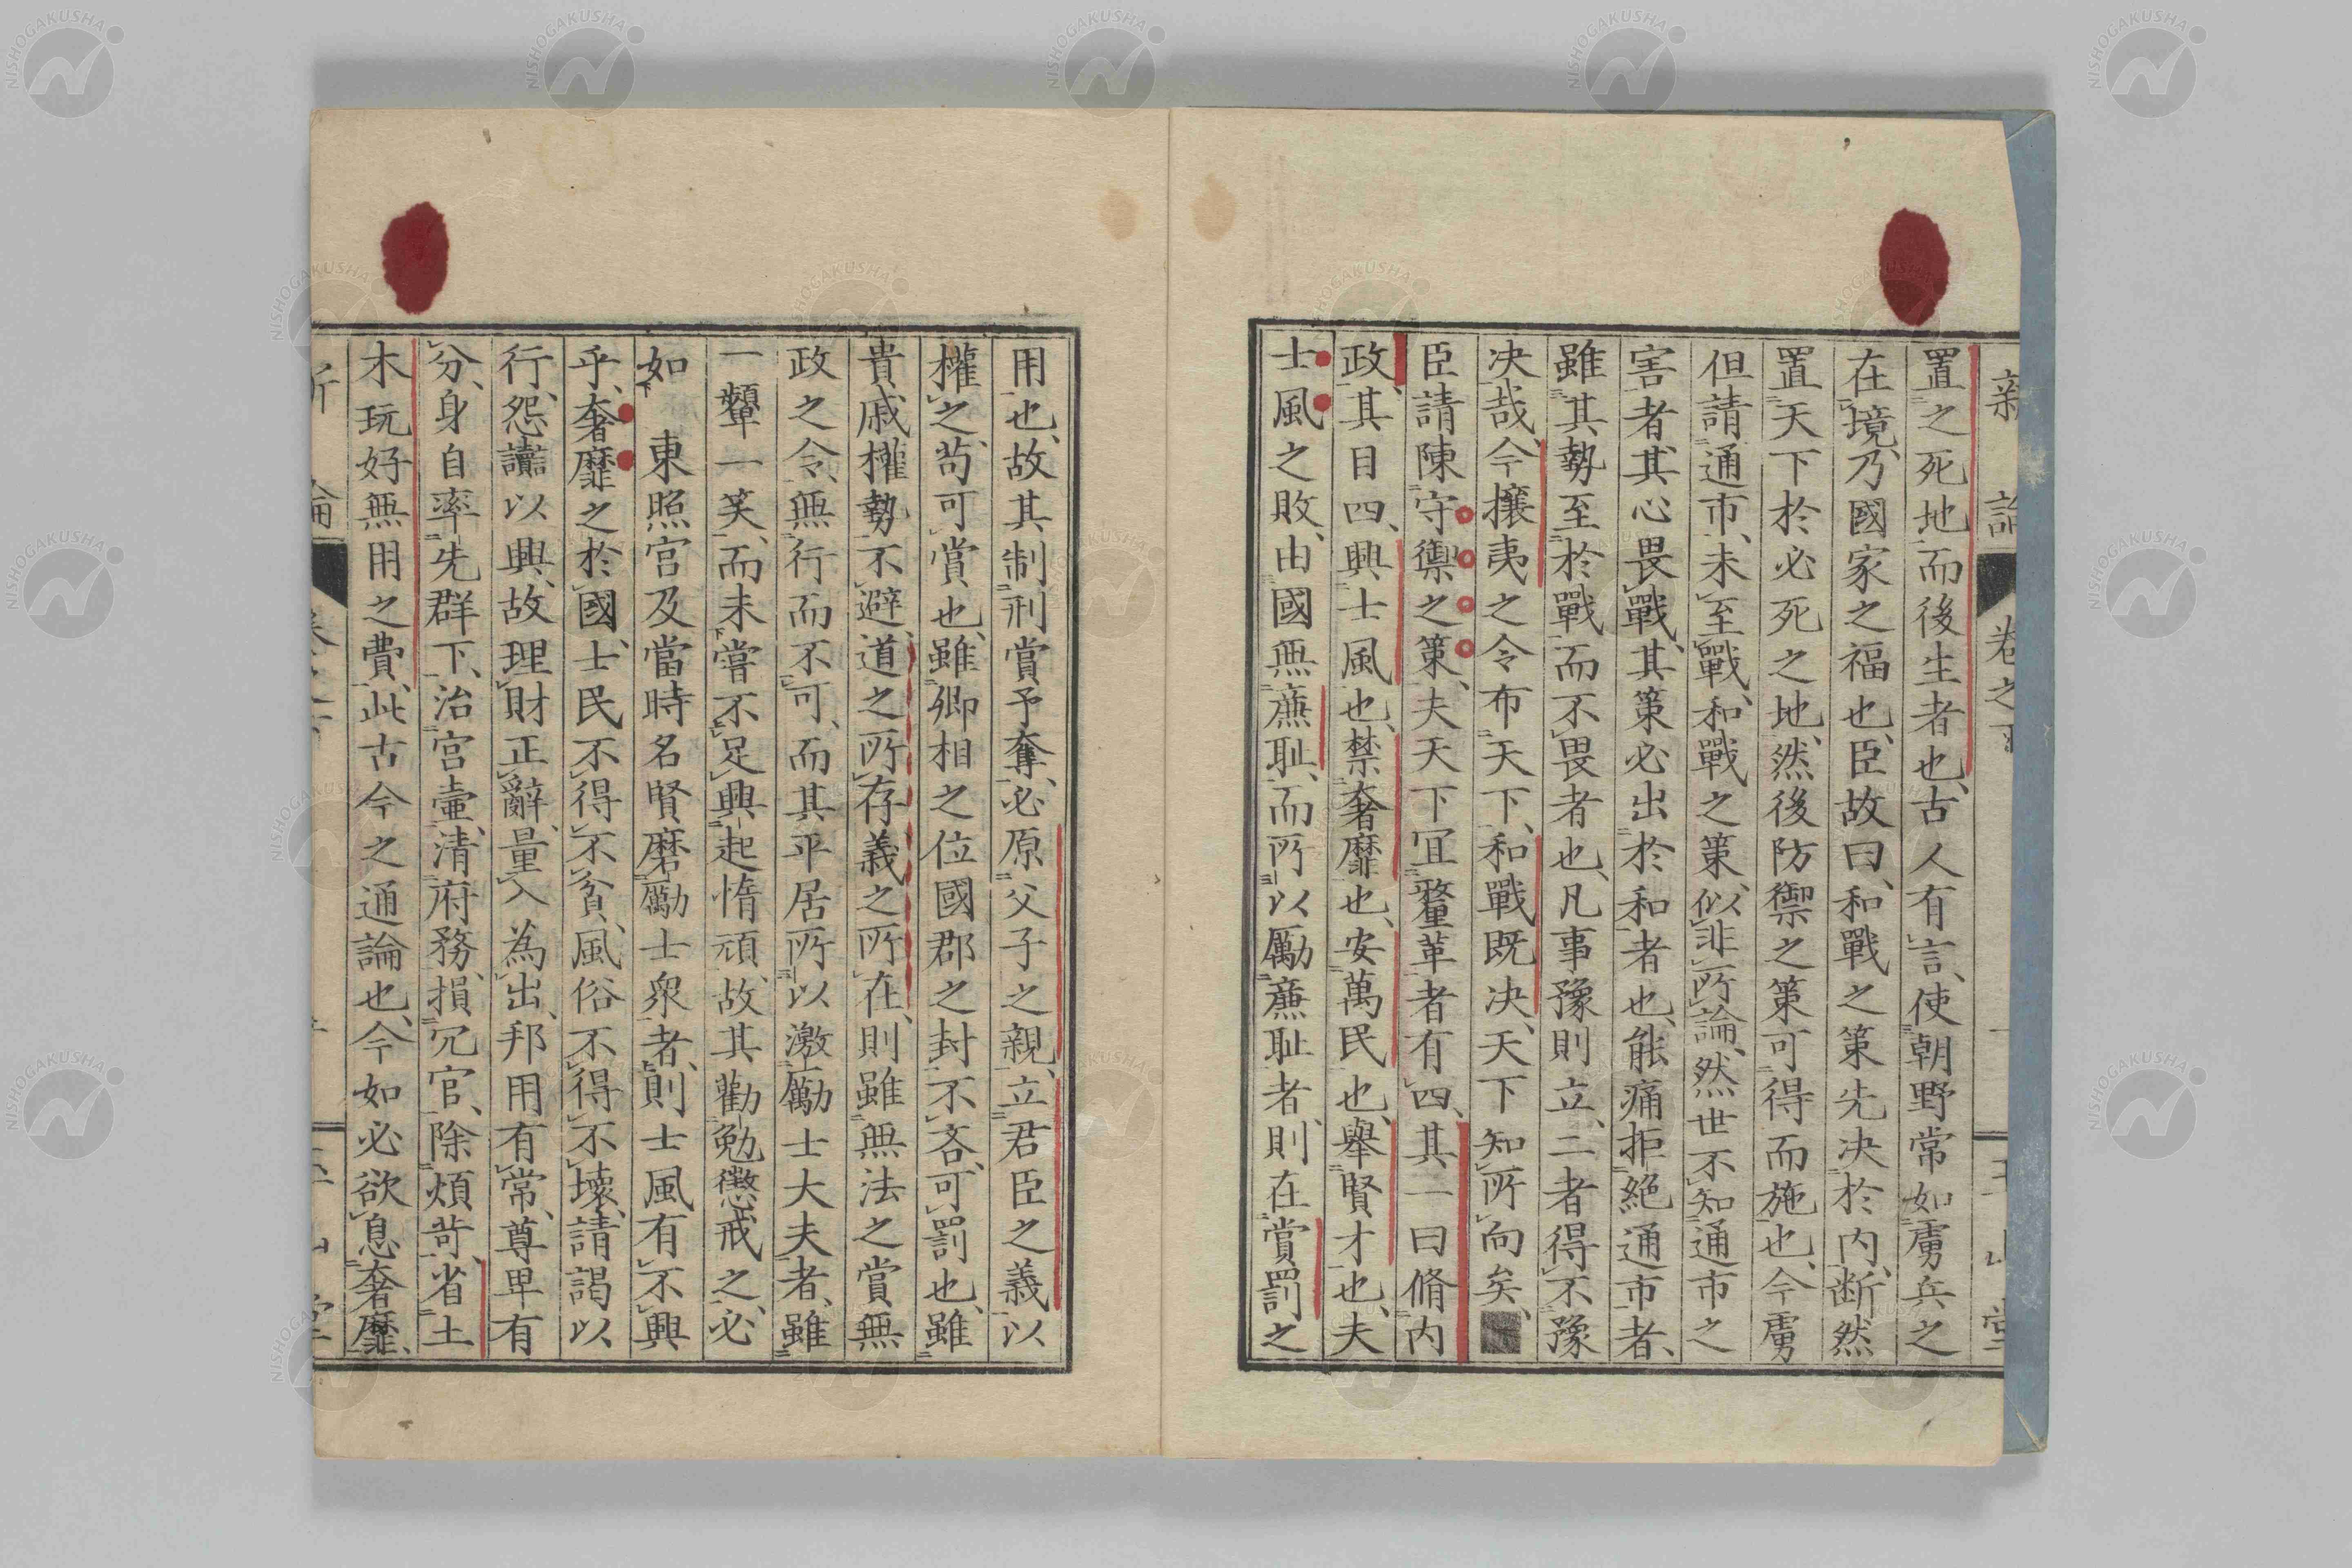 新論 卷之下
置之死地而後生者也、古人有言、使朝野常如虜兵之
在境、乃國家之福也、臣故曰、和戰之策先决於內、斷然
置天下於必死之地、然後防禦之策可得而施也、今虜
但請通市、未至戰、和戰之策、似非所論、然世不知通市之
害者、其心畏戰、其策必出於和者也、能痛拒絕通市者、
雖其勢至於戰、而不畏者也、凡事豫則立、二者得不豫
决哉、今攘夷之令布天下、和戰既决、天下知所向矣、
臣請陳守禦之策、夫天下冝釐革者有四、其一曰脩內
政、其目四、興士風也、禁奢靡也、安萬民也、舉賢才也、夫
士風之敗、由國無廉恥、而所以勵廉恥者、則在賞罰之
用也、故其制刑賞予奪、必原父子之親、立君臣之義以
權之、苟可賞也、雖卿相之位國郡之封、不吝、可罰也、雖
貴戚權勢、不避、道之所存、義之所在、則雖無法之賞無
政之令、無行而不可、而其平居所以激勵士大夫者、雖
一顰一笑、而未嘗不足興起惰頑、故其勸勉懲戒之、必
如 東照宮及當時名賢磨勵士衆者、則士風有不興
乎、奢靡之於國、士民不得不貧、風俗不得不壞、請謁以
行、怨讟以興、故理財正辭、量入為出、邦用有常、尊卑有
分、身自率先群下、治宮壼、清府務、損冗官、除煩苛、省土
木玩好無用之費、此古今之通論也、今如必欲息奢靡、